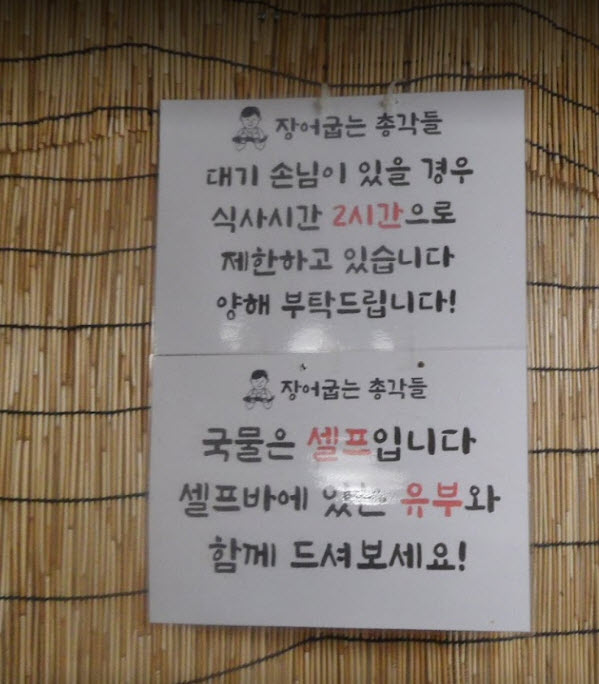 장어굽는 총각들
대기 손님이 있을 경우
식사시간 2시간으로
제한하고 있습니다
양해 부탁드립니다!
장어굽는 총각들
국물은 셀프입니다
셀프바에 있는 유부와
함께 드셔보세요!